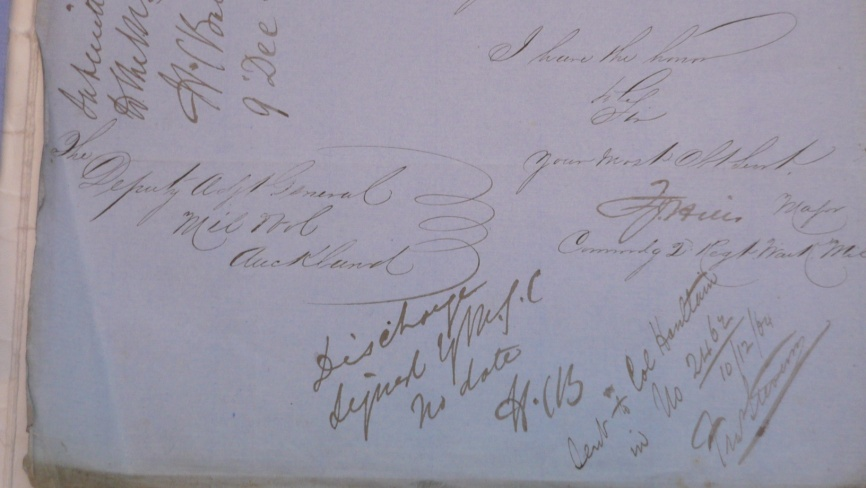 I have the honor
to be
Sir
Your Most Obt Servt.
Major
Commdg 2 Regt Waik Mil
The
Deputy Adjt General
Mil Vol
Auckland
H. C. B
9 Dec
Discharge
signed by M. G. C
no date
H. C B
Sent to Col Haultain
in No 2462
10/12/64